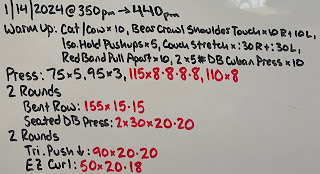 1/14/2024 @ 350pm → 440pm
Warm Up: Cat/Cow x 10, Bear Crawl Shoulder Touch x 10R + 10L,
Iso. Hold Pushups x 5, Couch Stretch x :30R + :30L,
Red Band Pull Apart x 10, 2 x 5# DB Cuban Press x 10
Press: 75 x 5, 95 x 3, 115 x 8·8·8·8, 110 x 8
2 Rounds
Bent Row: 155 x 15·15
Seated DB Press: 2 x 30 x 20·20
2 Rounds
Tri. Push ↓: 90 x 20·20
EZ Curl: 50 x 20·18